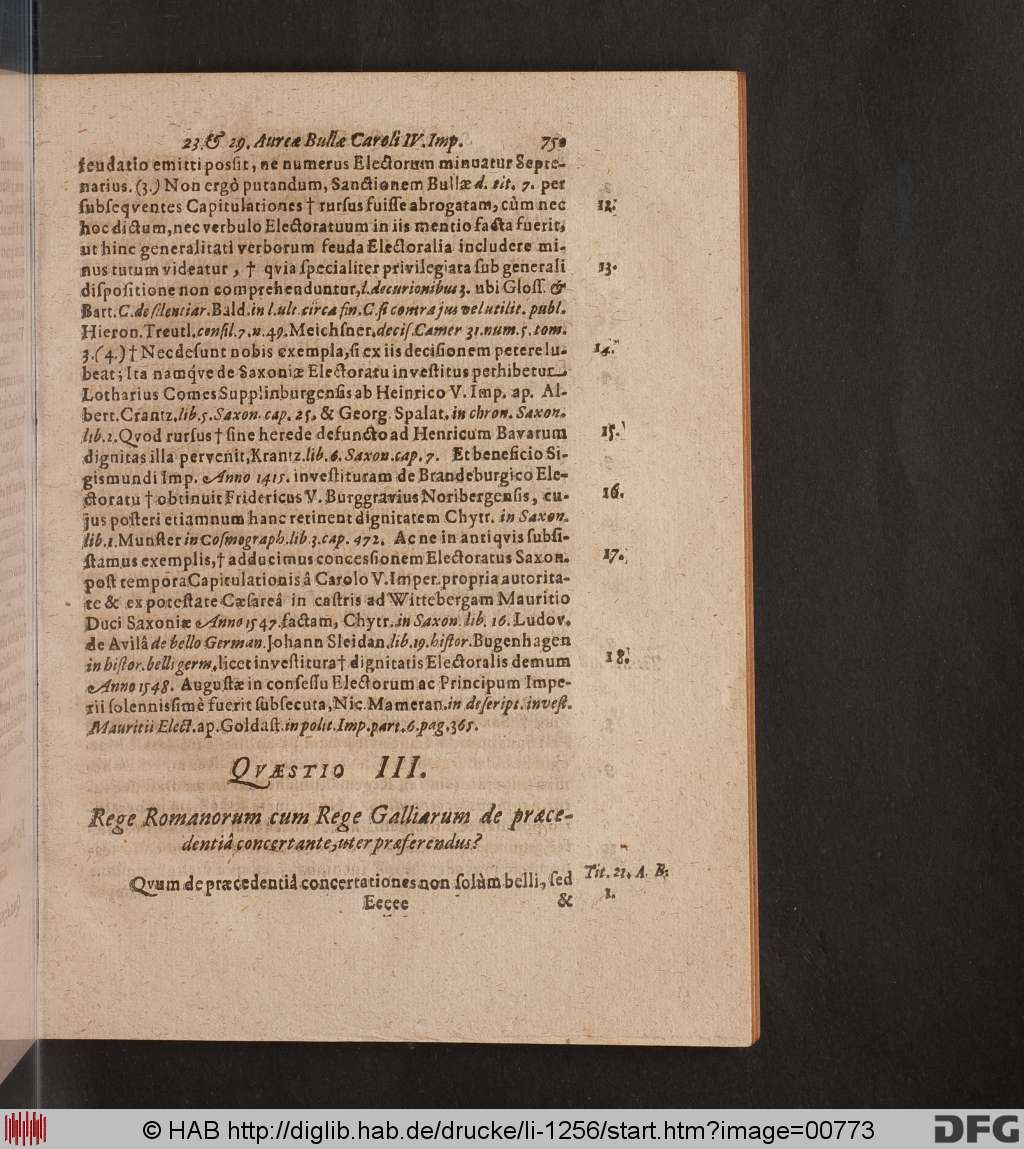 23. & 29. Aureæ Bullæ Caroli IV. Imp. 750
feudatio emitti possit, ne numerus Electorum minuatur Septe-
narius. (3.) Non ergò putandum, Sanctionem Bullæ d. tit. 7. per
subseqventes Capitulationes † rursus fuisse abrogatam, cùm nec 12.
hoc dictum, nec verbulo Electoratuum in iis mentio facta fuerit,
ut hinc generalitati verborum feuda Electoralia includere mi-
nus tutum videatur, † qvia specialiter privilegiata sub generali 13.
dispositione non comprehenduntur, l. decurionibus 3. ubi Gloss. &
Bart. C. de silentiar. Bald. in l. ult. circa fin. C. si contra jus vel utilit. publ.
Hieron. Treutl. consil. 7. n. 49. Meichsner. decis. Camer 31. num. 5. tom.
3. (4.) † Nec desunt nobis exempla, si ex iis decisionem petere lu- 14.
beat; Ita namqve de Saxoniæ Electoratu investitus perhibetur
Lotharius Comes Supplinburgensis ab Heinrico V. Imp. ap. Al-
bert. Crantz. lib. 5. Saxon. cap. 25. & Georg. Spalat. in chron. Saxon.
lib. 2. Qvod rursus † sine herede defuncto ad Henricum Bavarum 15.
dignitas illa pervenit, Krantz. lib. 6. Saxon. cap. 7. Et beneficio Si-
gismundi Imp. Anno 1415. investituram de Brandeburgico Ele-
ctoratu † obtinuit Fridericus V. Burggravius Noribergensis, cu- 16.
jus posteri etiamnum hanc retinent dignitatem Chytr. in Saxon.
lib. 1. Munster in Cosmograph. lib. 3. cap. 472. Ac ne in antiqvis subsi-
stamus exemplis, † adducimus concessionem Electoratus Saxon. 17.
post tempora Capitulationis â Carolo V. Imper. propria autorita-
te & ex potestate Cæsareâ in castris ad Wittebergam Mauritio
Duci Saxoniæ Anno 1547. factam, Chytr. in Saxon. lib. 16. Ludov.
de Avilâ de bello German. Johann Sleidan. lib. 19. histor. Bugenhagen
in histor. belli germ, licet investitura † dignitatis Electoralis demum 18.
Anno 1548. Augustæ in consessu Electorum ac Principum Impe-
rii solennissimè fuerit subsecuta, Nic. Mameran. in descript. invest.
Mauritii Elect. ap. Goldast. in polit. Imp. part. 6. pag. 365.
QVÆSTIO III.
Rege Romanorum cum Rege Galliarum de præce-
dentiâ concertante, uter præferendus?
Qvum de præcedentiâ concertationes non solùm belli, sed Tit. 21. A. B.
1.
Eeeee &
© HAB http://diglib.hab.de/drucke/li-1256/start.htm?image=00773
DFG